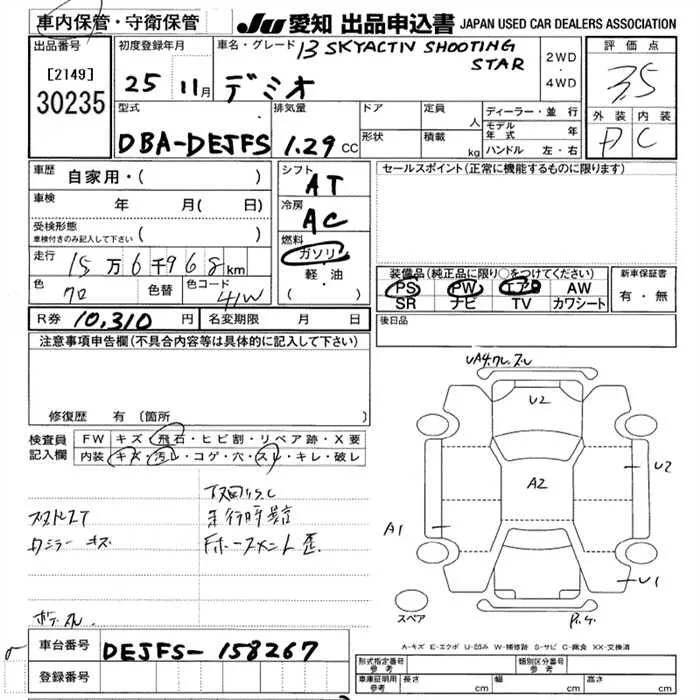 車内保管・守衛保管
JU 愛知 出品申込書 JAPAN USED CAR DEALERS ASSOCIATION
出品番号
[2149]
30235
初度登録年月
25 11月
車名・グレード 13 SKYACTIV SHOOTING STAR
デミオ
2WD
4WD
評価点
3.5
外装 内装
D C
型式
DBA-DEJFS
排気量
1.29 CC
ドア
定員 人
形状
積載 kg
ディーラー・並行
モデル年式 年
ハンドル 左・右
車歴 自家用・( )
車検 年 月( 日)
受検形態
車検付きのみ記入して下さい ( )
走行 15万6千968km
色 クロ 色替 色コード 41W
シフト
AT
冷房
AC
燃料
ガソリン
軽・油
( )
セールスポイント(正常に機能するものに限ります)
装備品(純正品に限り○をつけてください)
PS PW エアB AW
SR ナビ TV カワシート
新車保証書
有・無
R券 10,310円 名変期限 月 日
後日品
注意事項申告欄(不具合内容等は具体的に記入して下さい)
修復歴 有(箇所
検査員記入欄
FW キズ・飛石・ヒビ割・リペア跡・X要
内装 キズ・汚レ・コゲ・穴・スレ・キレ・破レ
取回りなし
走行時異音
Fホースメント歪
U2
A2
U2
A1
U1
スペア
A-キズ E-エクボ U-凹み W-補修跡 S-サビ C-腐食 XX-交換済
車台番号 DEJFS-158267
登録番号
形式指定番号 参考
類別区分番号 参考
車庫証明用 参考 長さ cm 幅 cm 高さ cm